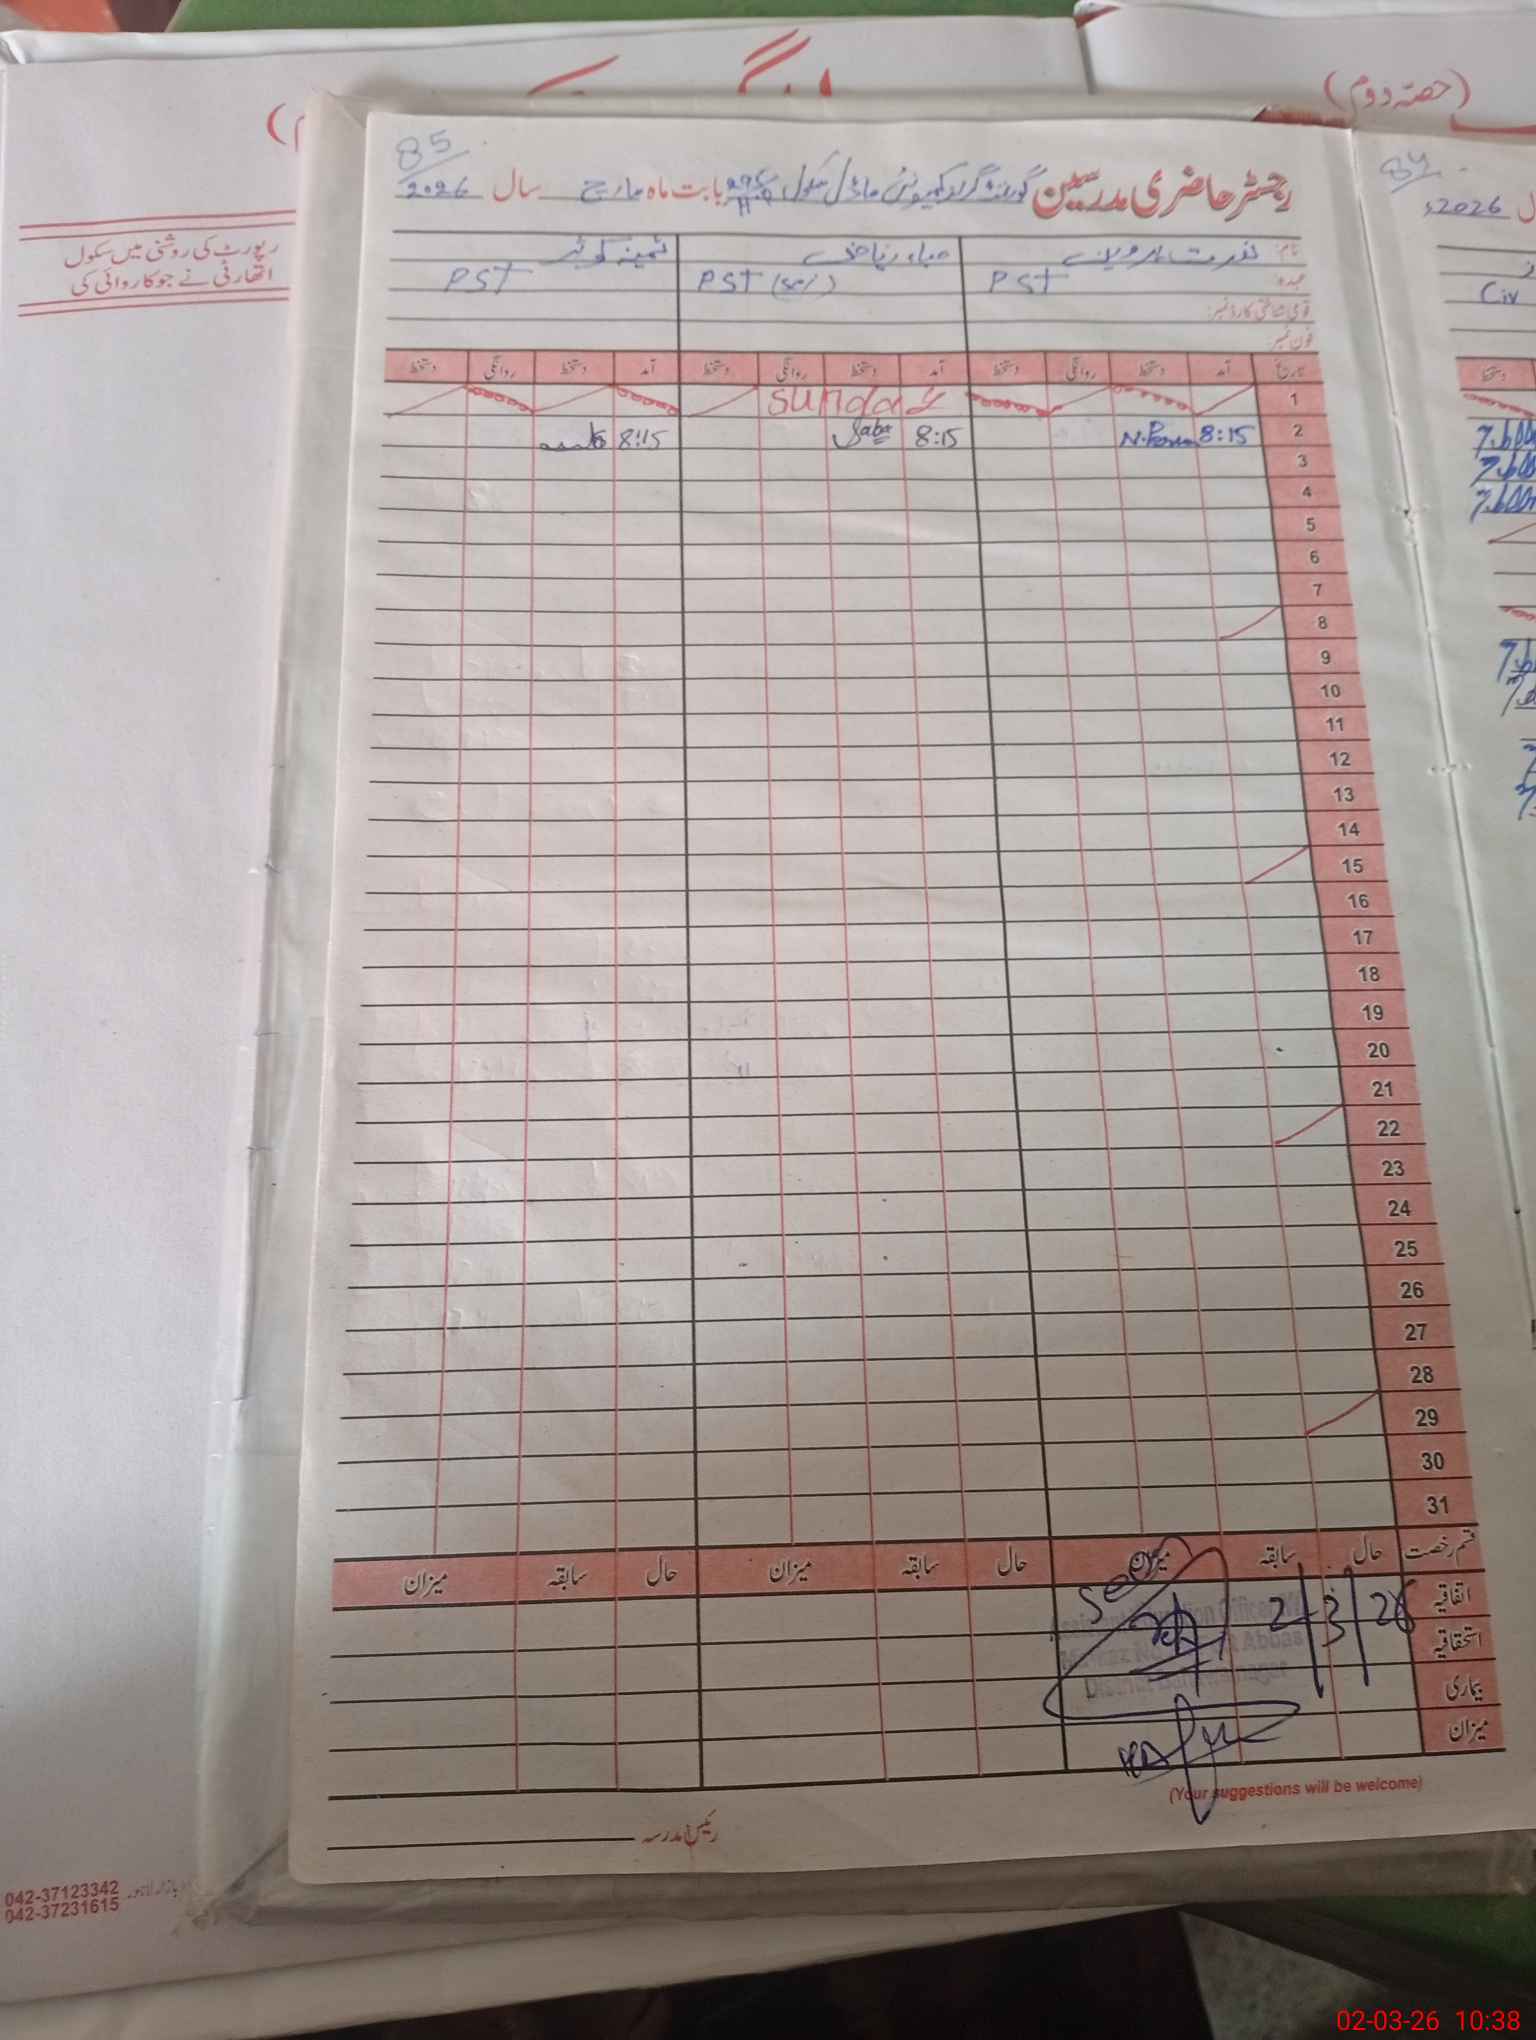 (حصہ دوم)
85
2026
84
2026ء
رجسٹر حاضری مدرسین گورنمنٹ گرلز کمیونٹی ماڈل سکول بابت ماہ مارچ سال 2026
رپورٹ کی روشنی میں سکول
اتھارٹی نے جو کاروائی کی
نام: نصرت پروین صباء ریاض ثمینہ کوثر
عہدہ: PST PST (sci) PST
قومی شناختی کارڈ نمبر:
فون نمبر:
تاریخ آمد دستخط روانگی دستخط آمد دستخط روانگی دستخط آمد دستخط روانگی دستخط
1 Sunday
2 8:15 8:15 Saba 8:15
3
4
5
6
7
8
9
10
11
12
13
14
15
16
17
18
19
20
21
22
23
24
25
26
27
28
29
30
31
قسم رخصت حال سابقہ میزان حال سابقہ میزان حال سابقہ میزان
اتفاقیہ
استحقاقیہ
بیماری
میزان
Seen
2/3/26
(Your suggestions will be welcome)
رئیس مدرسہ
042-37123342
042-37231615
02-03-26 10:38